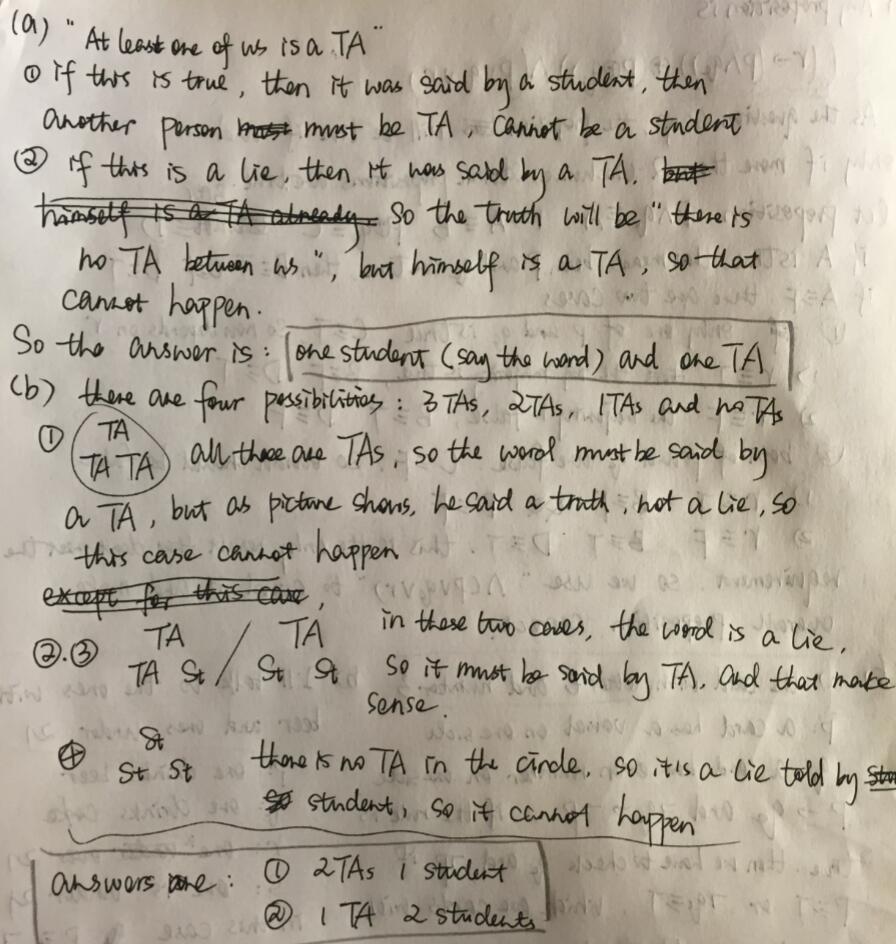 (a) "At least one of us is a TA"
① if this is true, then it was said by a student, then
another person must must be TA, cannot be a student
② if this is a lie, then it was said by a TA. but
himself is a TA already. So the truth will be "there is
no TA between us", but himself is a TA, so that
cannot happen.
So the answer is: one student (say the word) and one TA
(b) there are four possibilities: 3 TAs, 2TAs, 1TAs and no TAs
① TA
TA TA
all three are TAs, so the word must be said by
a TA, but as picture shows, he said a truth, not a lie, so
this case cannot happen
except for this case,
②.③ TA / TA
TA St / St St
in these two cases, the word is a lie,
so it must be said by TA. and that make
sense.
④ St
St St
there is no TA in the circle, so it is a lie told by
student, so it cannot happen
answers are: ① 2TAs 1 student
② 1 TA 2 students